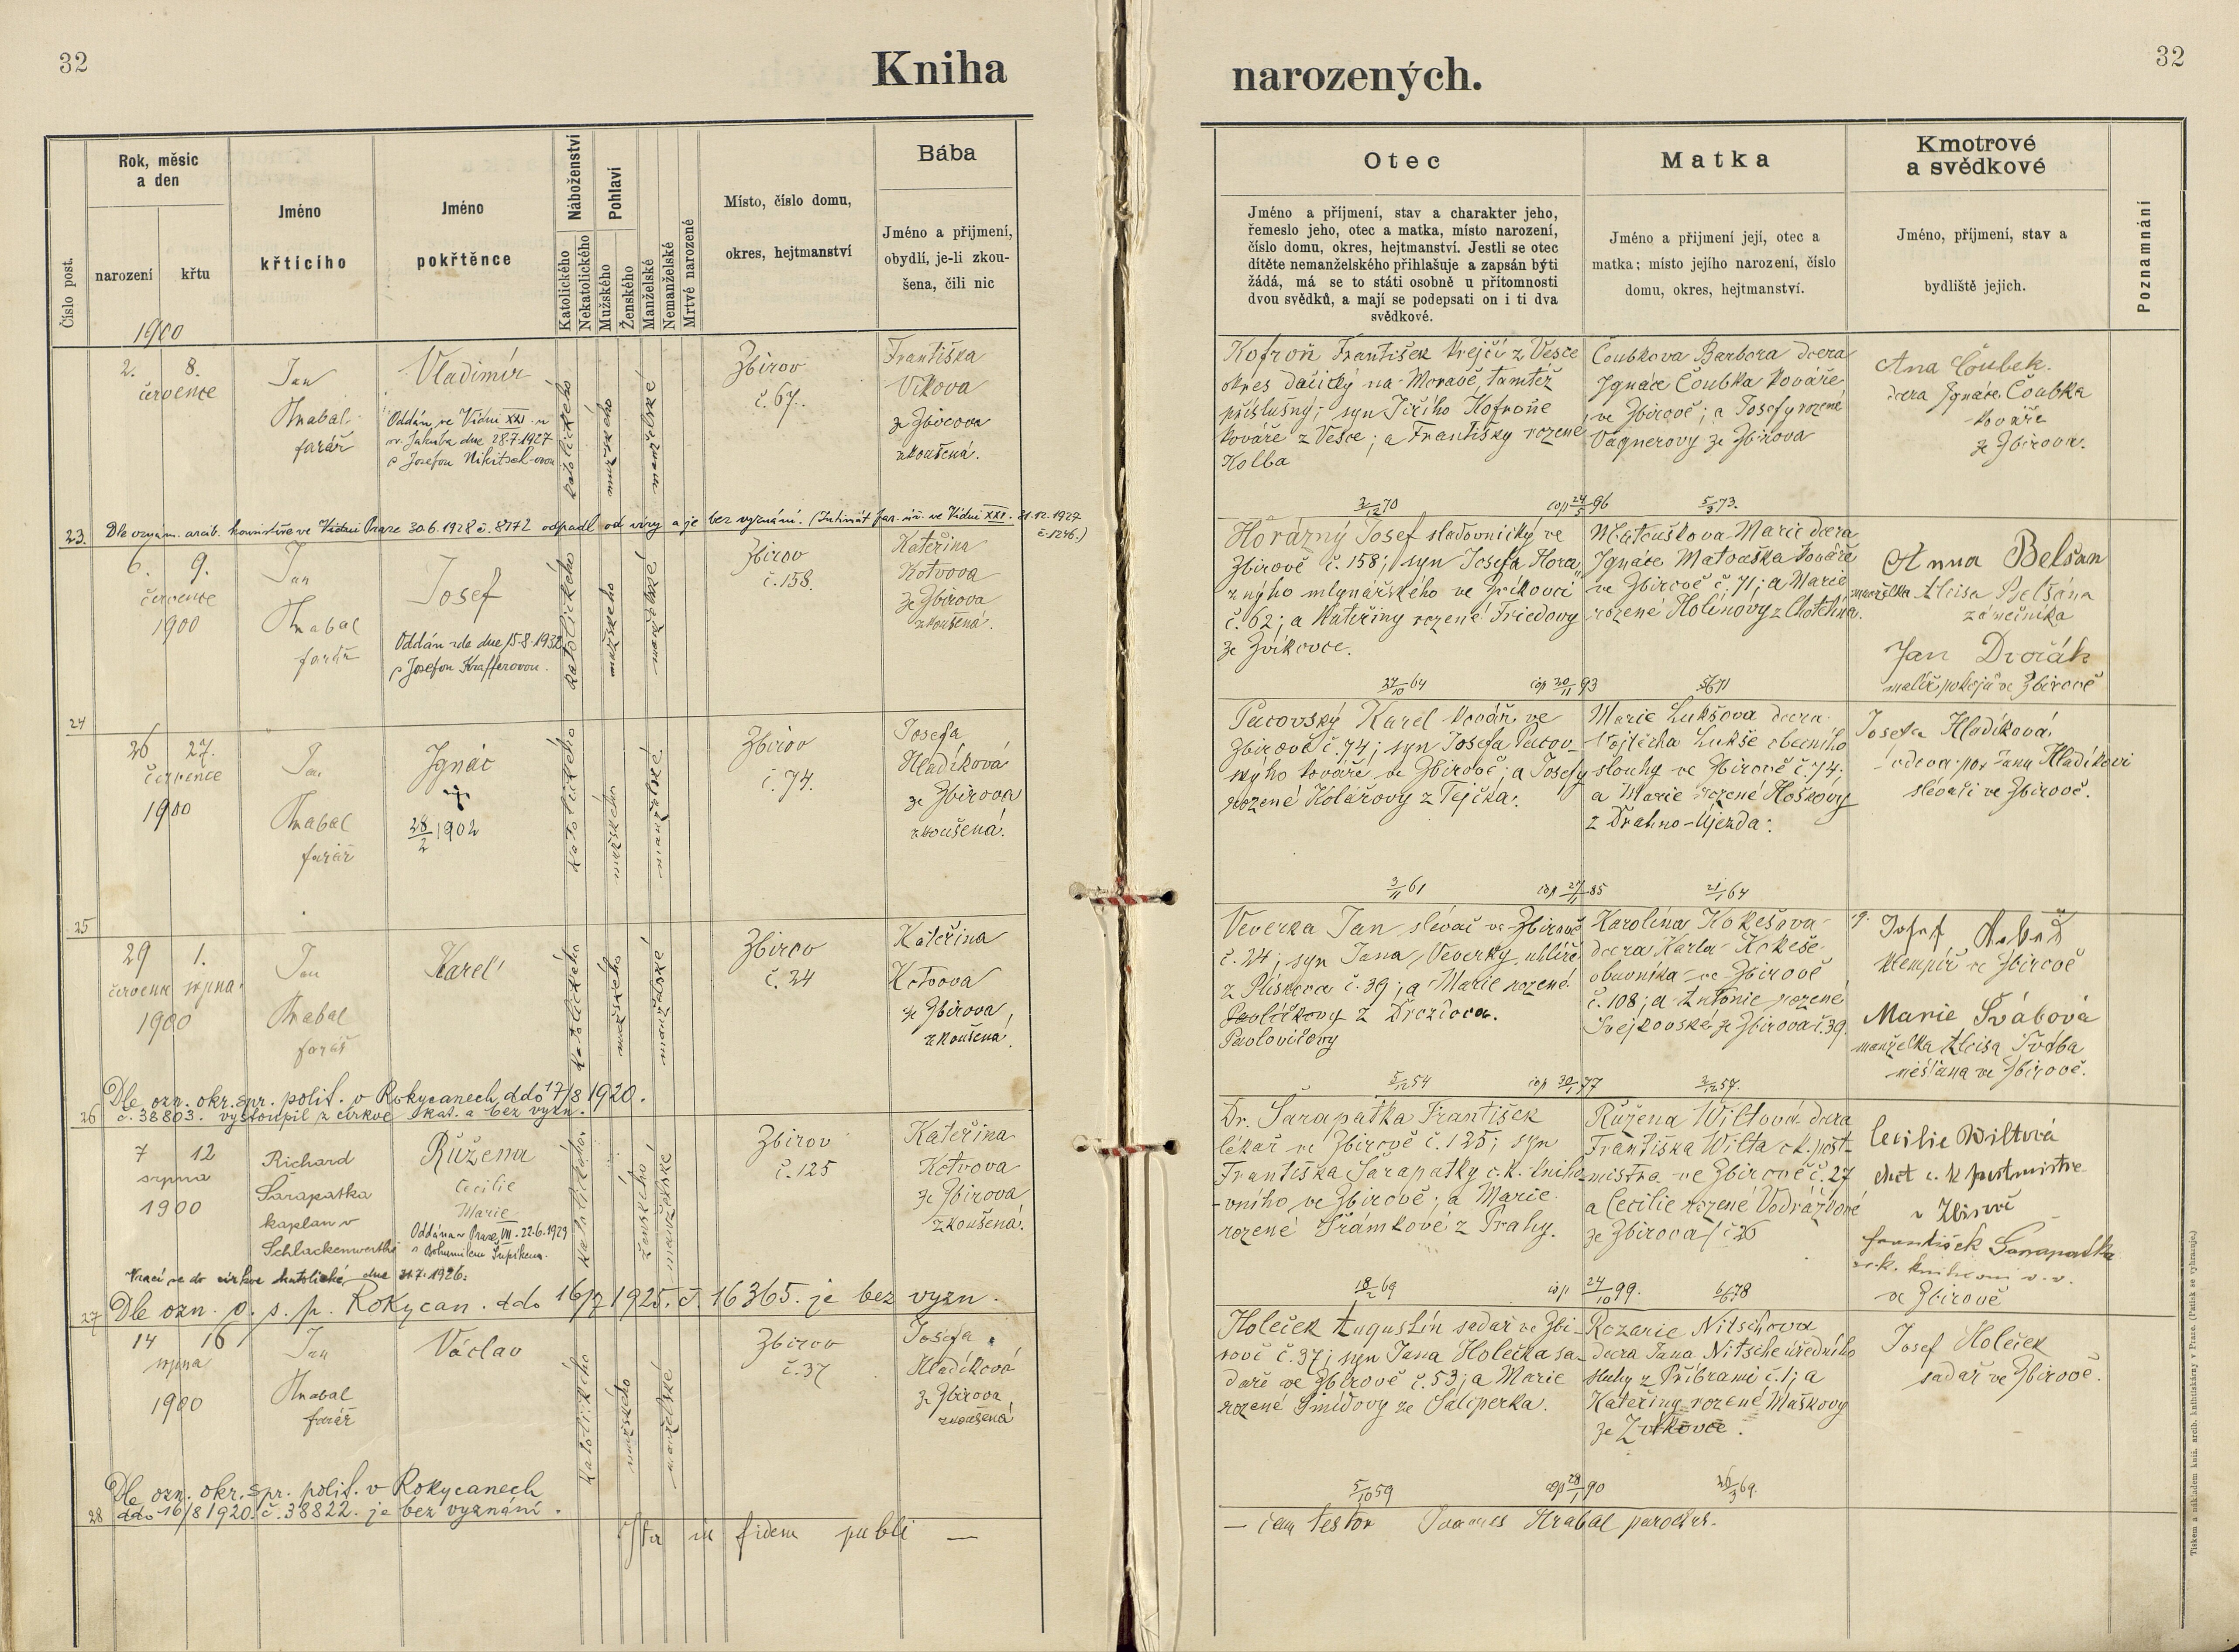 32
Kniha
narozených.
32
Číslo post.
Rok, měsíc
a den
narození
křtu
1900
Jméno
křtícího
Jméno
pokřtěnce
Náboženství
Katolického
Nekatolického
Pohlaví
Mužského
Ženského
Manželské
Nemanželské
Mrtvě narozené
Místo, číslo domu,
okres, hejtmanství
Bába
Jméno a přijmení,
obydlí, je-li zkou-
šena, čili nic
Otec
Jméno a příjmení, stav a charakter jeho,
řemeslo jeho, otec a matka, místo narození,
číslo domu, okres, hejtmanství. Jestli se otec
dítěte nemanželského přihlašuje a zapsán býti
žádá, má se to státi osobně u přítomnosti
dvou svědků, a mají se podepsati on i ti dva
svědkové.
Matka
Jméno a přijmení její, otec a
matka; místo jejího narození, číslo
domu, okres, hejtmanství.
Kmotrové
a svědkové
Jméno, příjmení, stav a
bydliště jejich.
Poznamnání
23.
2. 8.
července
Jan
Hrabal
farář
Vladimír
Oddán ve Vídni XXI u
sv. Jakuba dne 28.7.1927
s Josefou
katolického
mužského
manželské
Zbirov
č. 67.
Františka
Vlkova
ze Zbirova
zkoušená.
Kofroň František krejčí z Vesce
okres dačický na Moravě, tamtéž
příslušný; syn Jiřího Kofroně
kováře z Vesce; a Františky rozené
Kolba
2/12 70
cop 24/5 96
Čoubkova Barbora dcera
Ignáce Čoubka kováře
ve Zbirově; a Josefy rozené
Vagnerovy ze Zbirova
5/3 73.
Ana Čoubek.
dcera Ignáce Čoubka
kováře
ze Zbirova.
Dle oznám. arcib. konsistoře ve Vídni Praze 30.6.1928 č. 8172 odpadl od víry a je bez vyznání. (Intimát far. úř. ve Vídni XXI. 21.12.1927
č. 1246.)
24
6. 9.
července
1900
Jan
Hrabal
farář
Josef
Oddán zde dne 15.8.1932
s Josefou Krafferovou.
katolického
mužského
manželské
Zbirov
č. 158.
Kateřina
Kotvova
ze Zbirova
zkoušená.
Horázný Josef sladovnický ve
Zbirově č. 158; syn Josefa Hora-
zného mlynářského ve Zvíkovci
č. 62; a Kateřiny rozené Friedovy
ze Zvíkovce.
27/10 64
cop 20/11 93
Matouškova Marie dcera
Ignáce Matouška kováře
ve Zbirově č. 71; a Marie
rozené Holinovy z Chotětína.
Anna Belšan
manželka Aloisa Belšána
zámečníka
Jan Dvořák
malíř pokojů ve Zbirově
25
26 27.
července
1900
Jan
Hrabal
farář
Ignác
28/2 1902
katolického
mužského
manželské
Zbirov
č. 74.
Josefa
Hladíková
ze Zbirova
zkoušená.
Pacovský Karel kovář ve
Zbirově č. 74; syn Josefa Pacov-
ského kováře ve Zbirově; a Josefy
rozené Kolářovy z Tejčka.
3/11 61
cop 27/1 85
Marie Lukšova dcera
Vojtěcha Lukše obecního
slouhy ve Zbirově č. 74;
a Marie rozené Hoškovy
z Drahno-Újezda.
21/1 64
Josefa Hladíková
vdova po Janu Hladíkovi
slévači ve Zbirově.
26
29 1.
července srpna
1900
Jan
Hrabal
farář
Karel
katolického
mužského
manželské
Zbirov
č. 24
Kateřina
Kotvova
ze Zbirova,
zkoušená.
Veverka Jan slévač ve Zbirově
č. 24; syn Jana Veverky uhlíře
z Plískova č. 39; a Marie rozené
Pavlíkovy z Drozdova.
Pavlovičovy
5/12 54
cop 30/1 77
Karolina Kokešova
dcera Karla Kokeše
obuvníka ve Zbirově
č. 108; a Antonie rozené
Švejkovské ze Zbirova č. 39.
2/12 57.
Josef
klempíř ve Zbirově
Marie Švábová
manželka Aloisa Švába
měšťana ve Zbirově.
Dle ozn. okr. spr. polit. v Rokycanech ddo 17/8 1920.
č. 38803. vystoupil z církve kat. a bez vyzn.
27
7 12
srpna
1900
Richard
Sarapatka
kaplan v
Schlackenwerthu
Růžena
Cecilie
Marie
Oddána v Praze VII. 22.6.1929
s Bohumilem Šupíkem.
katolického
ženského
manželské
Zbirov
č. 125
Kateřina
Kotvova
ze Zbirova
zkoušená.
Dr. Šarapatka František
lékař ve Zbirově č. 125; syn
Františka Šarapatky c. k. kniho-
vního ve Zbirově; a Marie
rozené Šrámkové z Prahy.
18/2 69
cop 24/10 99.
Růžena Wiltová dcera
Františka Wilta c. k. pošt-
mistra ve Zbirově č. 27
a Cecilie rozené Vodrážkové
ze Zbirova č 26
6/6 78
Cecilie Wiltová
choť c. k postmistra
v Zbirově
František Sarapatka
c. k. knihovní v. v.
ve Zbirově
Vrací se do církve katolické dne 31.7.1926.
Dle ozn. o. s. p. Rokycan. ddo 16/7 1925. č. 16365. je bez vyzn.
28
14 16
srpna
1900
Jan
Hrabal
farář
Václav
katolického
mužského
manželské
Zbirov
č. 37
Josefa
Hladíková
ze Zbirova
zkoušená
Holeček Augustin sadař ve Zbi-
rově č. 37; syn Jana Holečka sa-
daře ve Zbirově č. 53; a Marie
rozené Šmídovy ze Salcperka.
5/10 59
cop 28/1 90
Rozarie Nitschova
dcera Jana Nitsche úředního
sluhy z Příbrami č. 1; a
Kateřiny rozené Maškovy
ze Zvíkovce.
26/3 69.
Josef Holeček
sadař ve Zbirově.
Dle ozn. okr. spr. polit. v Rokycanech
ddo 16/8 1920. č. 38822. je bez vyznání.
Ita in fidem publi —
— cam testor Joannes Hrabal parochus.
Tiskem a nákladem kníž. arcib. knihtiskárny v Praze. (Patisk se vyhrazuje.)